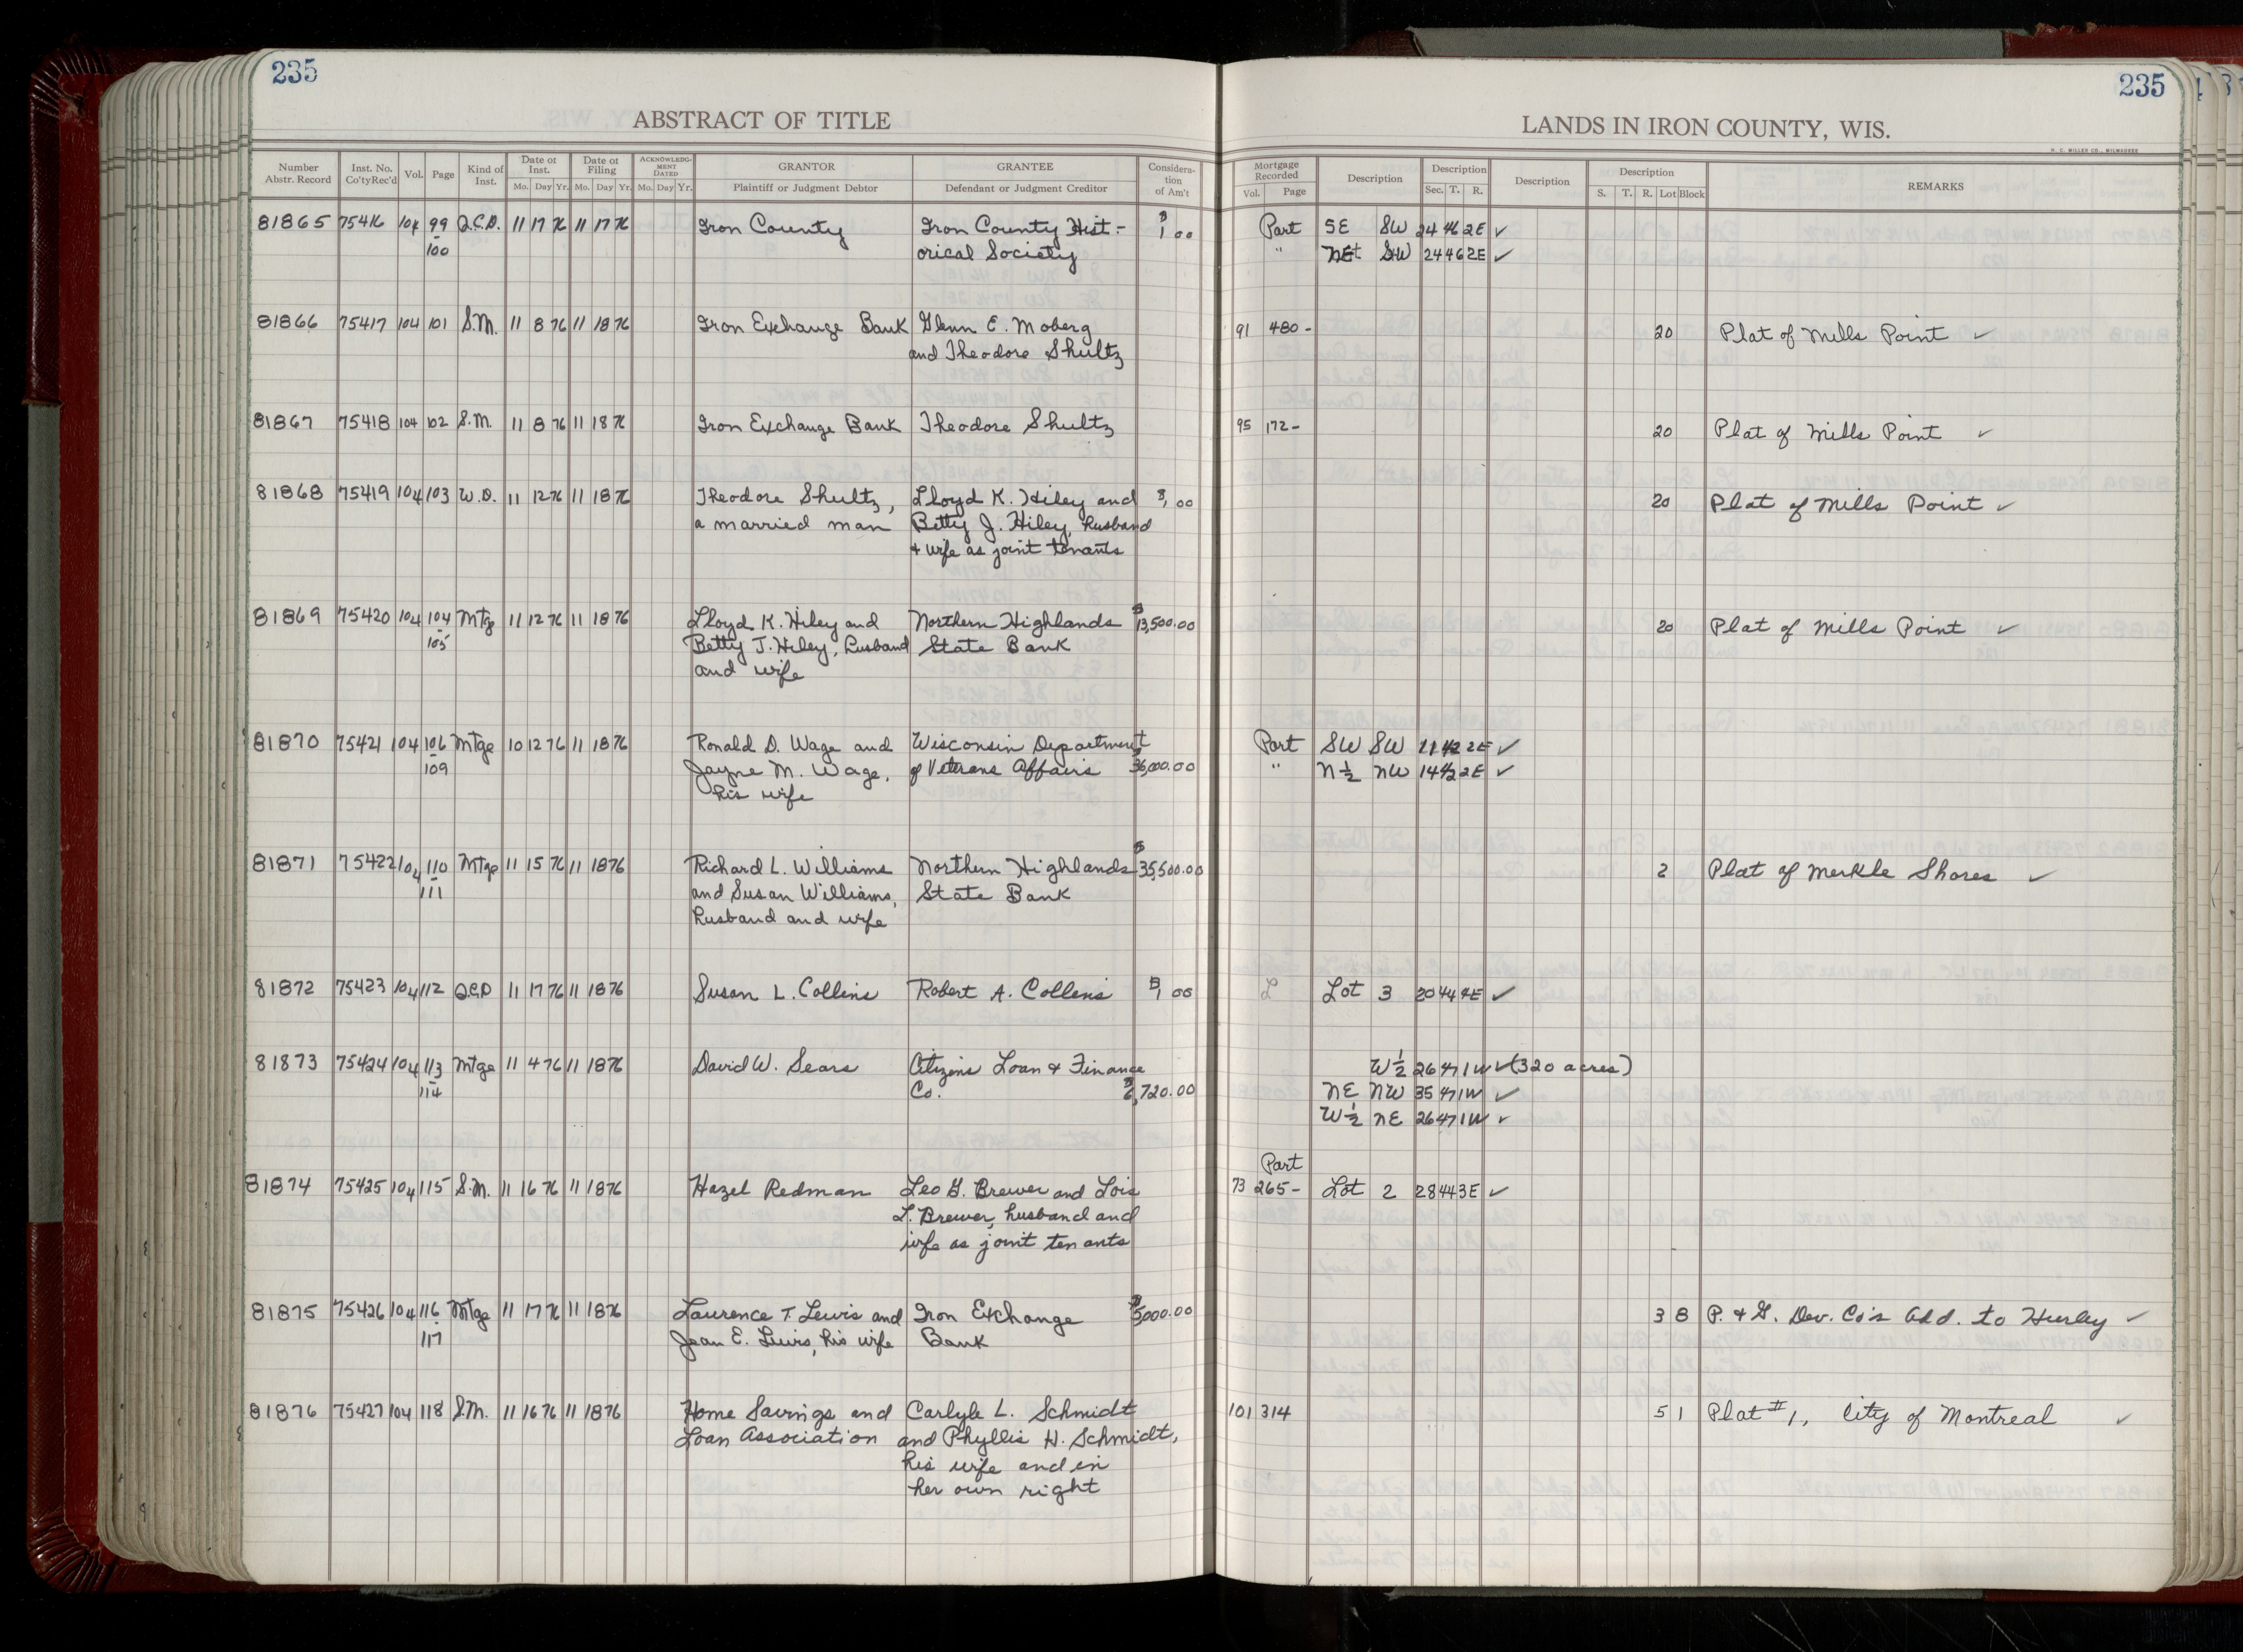 235
235
ABSTRACT OF TITLE
LANDS IN IRON COUNTY, WIS.
H. C. MILLER CO., MILWAUKEE
Number Abstr. Record Inst. No. Co'ty Rec'd Vol. Page Kind of Inst. Date of Inst. Mo. Day Yr. Date of Filing Mo. Day Yr. ACKNOWLEDGMENT DATED Mo. Day Yr. GRANTOR Plaintiff or Judgment Debtor GRANTEE Defendant or Judgment Creditor Consideration of Am't Mortgage Recorded Vol. Page Description Description Sec. T. R. Description Description S. T. R. Lot Block REMARKS
81865 75416 104 99 Q.C.D. 11 17 76 11 17 76 Iron County Iron County Hist- $1 00 Part SE SW 24 46 2E ✓
- 100 orical Society " NE SW 24 46 2E ✓
81866 75417 104 101 S.M. 11 8 76 11 18 76 Iron Exchange Bank Glenn E. Moberg 91 480- 20 Plat of Mills Point ✓
and Theodore Shultz
81867 75418 104 102 S.M. 11 8 76 11 18 76 Iron Exchange Bank Theodore Shultz 95 172- 20 Plat of Mills Point ✓
81868 75419 104 103 W.D. 11 12 76 11 18 76 Theodore Shultz, Lloyd K. Hiley and $1 00 20 Plat of Mills Point ✓
a married man Betty J. Hiley, husband
+ wife as joint tenants
81869 75420 104 104 Mtg 11 12 76 11 18 76 Lloyd K. Hiley and Northern Highlands $13,500.00 20 Plat of Mills Point ✓
- 105 Betty J. Hiley, husband State Bank
and wife
81870 75421 104 106 Mtge 10 12 76 11 18 76 Ronald D. Wage and Wisconsin Department Part SW SW 11 42 2E ✓
- 109 Jayne M. Wage, of Veterans Affairs $36,000.00 " N½ NW 14 42 2E ✓
his wife
81871 75422 104 110 Mtge 11 15 76 11 18 76 Richard L. Williams Northern Highlands $35,500.00 2 Plat of Merkle Shores ✓
- 111 and Susan Williams, State Bank
husband and wife
81872 75423 104 112 Q.C.D 11 17 76 11 18 76 Susan L. Collins Robert A. Collens $1 00 L Lot 3 20 44 4E ✓
81873 75424 104 113 Mtge 11 4 76 11 18 76 David W. Sears Citizens Loan & Finance W½ 26 47 1W ✓ (320 acres)
- 114 Co. $6,720.00 NE NW 35 47 1W ✓
W½ NE 26 47 1W ✓
Part
81874 75425 104 115 S.M. 11 16 76 11 18 76 Hazel Redman Leo G. Brewer and Lois 73 265- Lot 2 28 44 3E ✓
L. Brewer, husband and
wife as joint tenants
81875 75426 104 116 Mtge 11 17 76 11 18 76 Laurence T. Lewis and Iron Exchange $5,000.00 3 8 P. & G. Dev. Co's Add. to Hurley ✓
- 117 Jean E. Lewis, his wife Bank
81876 75427 104 118 S.M. 11 16 76 11 18 76 Home Savings and Carlyle L. Schmidt 101 314 5 1 Plat #1, City of Montreal ✓
Loan Association and Phyllis H. Schmidt,
his wife and in
her own right